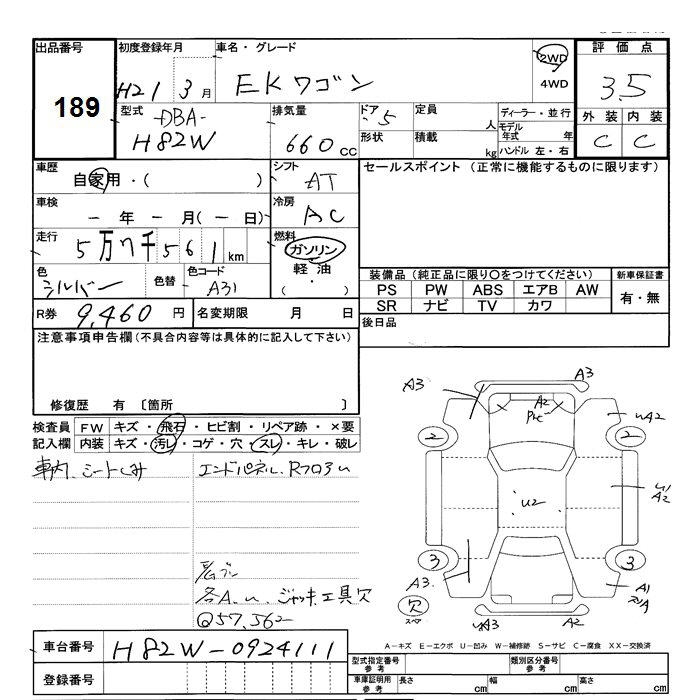 出品番号 初度登録年月 車名・グレード 評価点
189 H21 3月 EKワゴン 2WD 4WD 3.5
型式 DBA- H82W 排気量 660cc ドア 5 定員 人 ディーラー・並行 外装 内装
形状 積載 kg モデル年式 年 ハンドル 左・右 C C
車歴 自家用・( ) シフト AT セールスポイント (正常に機能するものに限ります)
車検 ー年ー月(ー日) 冷房 AC
走行 5万7千561km 燃料 ガソリン
軽油・( )
色 シルバー 色替 色コード A31 装備品(純正品に限り〇をつけてください) 新車保証書
PS PW ABS エアB AW 有・無
SR ナビ TV カワ
R券 9,460円 名変期限 月 日 後日品
注意事項申告欄(不具合内容等は具体的に記入して下さい)
修復歴 有 〔箇所 〕
検査員 FW キズ・飛石・ヒビ割・リペア跡・×要
記入欄 内装 キズ・汚レ・コゲ・穴・スレ・キレ・破レ
車内、シートしみ エンドパネル、Rフロアu
各A.u. ジャッキ工具欠
Q57,562
A3 A3
A2
uA2
2 2
U2
u1
A2
3 3
A3. A1
欠
スペア
uA3 A2
A－キズ E－エクボ U－凹み W－補修跡 S－サビ C－腐食 XX－交換済
車台番号 H82W-0924111
型式指定番号 参考 類別区分番号 参考
登録番号
車庫証明用 参考 長さ cm 幅 cm 高さ cm